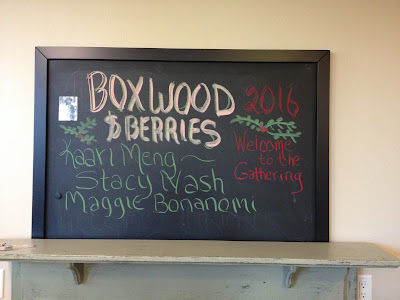 BOXWOOD 2016
& BERRIES
Welcome
to the
Gathering
Kaari Meng ~
Stacy Nash
Maggie Bonanomi